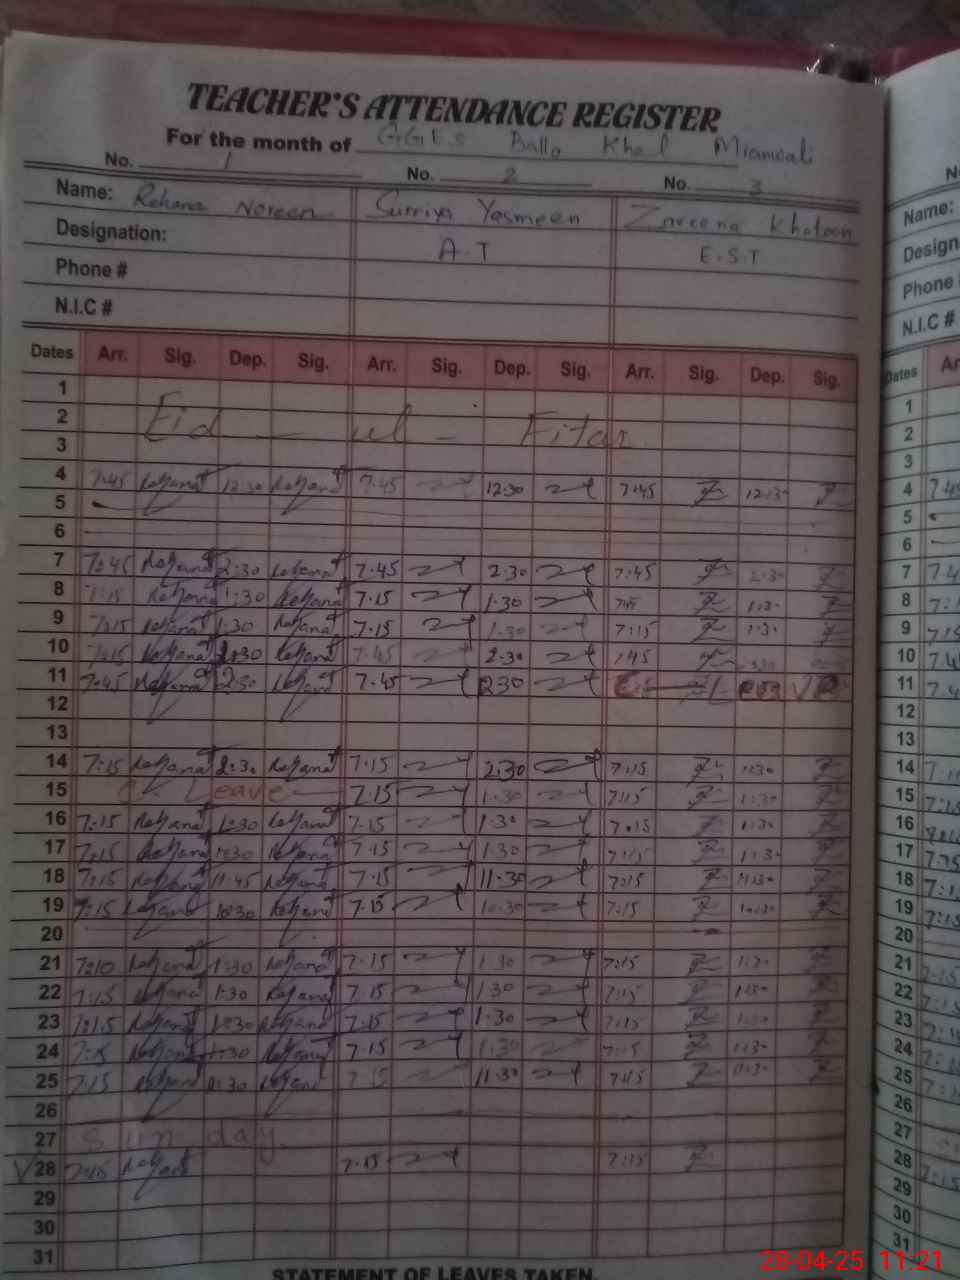 TEACHER'S ATTENDANCE REGISTER
For the month of G.G.E.S Ballo Khel Mianwali
No. 1 No. 2 No. 3
Name: Rehana Noreen Surriya Yasmeen Zareena Khatoon
Designation: A.T E.S.T
Phone #
N.I.C #
Dates Arr. Sig. Dep. Sig. Arr. Sig. Dep. Sig. Arr. Sig. Dep. Sig.
1
2 Eid - ul - Fitar
3
4 7:45 Rehana 12:30 Rehana 7.45 12:30 7:45 12:30
5
6
7 7:45 Rehana 2:30 Rehana 7.45 2:30 7:45 2:30
8 7:15 Rehana 1:30 Rehana 7.15 1.30 1:30
9 7:15 Rehana 1:30 Rehana 7.15 1.30 7:15 1:30
10 7:15 Rehana Rehana 7.45 2:30
11 7:45 Rehana 2:30 Rehana 7.45 2:30
12
13
14 7:15 Rehana 2:30 Rehana 7.15 2:30 7:15 1:30
15 Leave 7.15 1.30 7:15 1:30
16 7:15 Rehana 1:30 Rehana 7.15 1:30 7:15 1:30
17 7:15 Rehana 1:30 Rehana 7.15 1:30 7:15 1:30
18 7:15 Rehana 11:45 Rehana 7.15 11:30 7:15 11:30
19 7:15 Rehana 10:30 Rehana 7.15 10:30 7:15 10:30
20
21 7:10 Rehana 1:30 Rehana 7.15 1.30 7:15 1:30
22 7:15 Rehana 1:30 Rehana 7.15 1:30 7:15 1:30
23 7:15 Rehana 1:30 Rehana 7.15 1:30 7:15 1:30
24 7:15 Rehana 1:30 Rehana 7.15 1:30 7:15 1:30
25 7:15 Rehana 11:30 Rehana 7.15 11:30 7:15 11:30
26
27 Sunday.
28 7:15 Rehana 7.15 7:15
29
30
31
STATEMENT OF LEAVES TAKEN.
Name:
Phone
N.I.C #
Dates
1
2
3
4
5
6
7
8
9
10
11
12
13
14
15
16
17
18
19
20
21
22
23
24
25
26
27
28
29
30
31
28-04-25 11:21